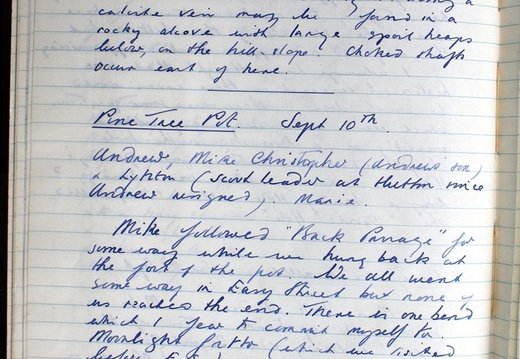 calcite vein may be found in a
rocky alcove with large spoil heaps
below, on the hill-slope. Choked shafts
occur east of here.
Pine Tree Pot. Sept 10th.
Andrew, Mike Christopher (Andrews son)
& (Scout leader at Hutton since
Andrew resigned). Marie.
Mike followed "Back Passage" for
some way while we hung back at
the foot of the pot. We all went
some way in Easy Street but none of
us reaches the end. There is one bend
which I fear to commit myself to.
Moonlight Grotto (which we visited
before